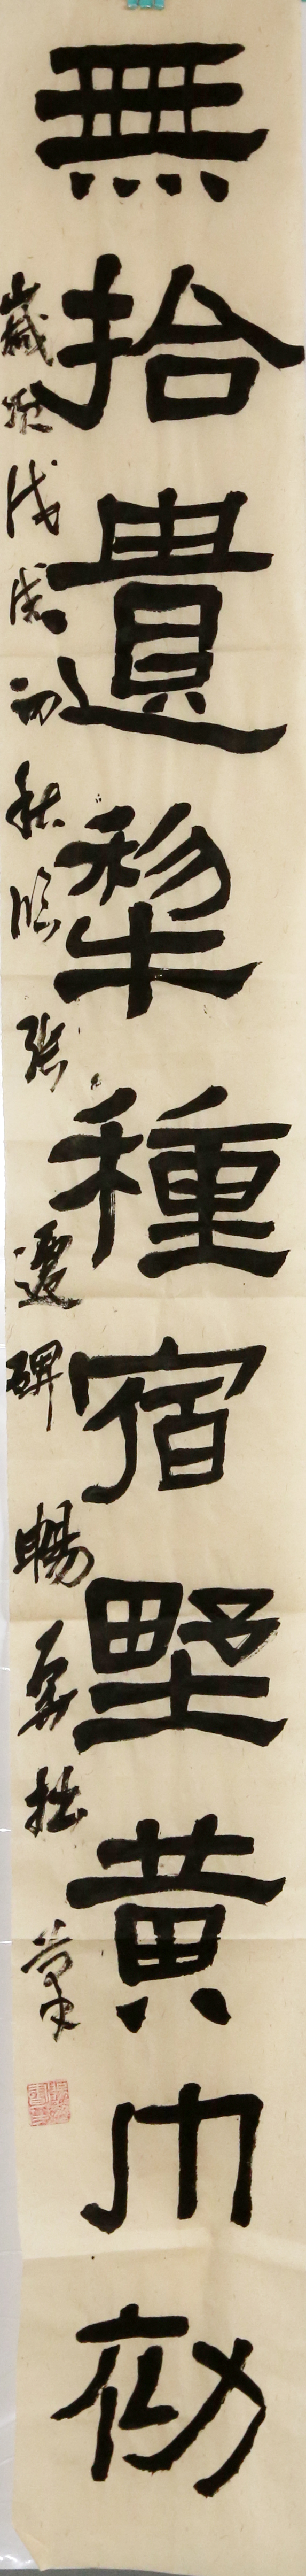 無拾遺犂種宿野黃巾初
歲 戊戌初秋臨張遷碑 暢 拙筆